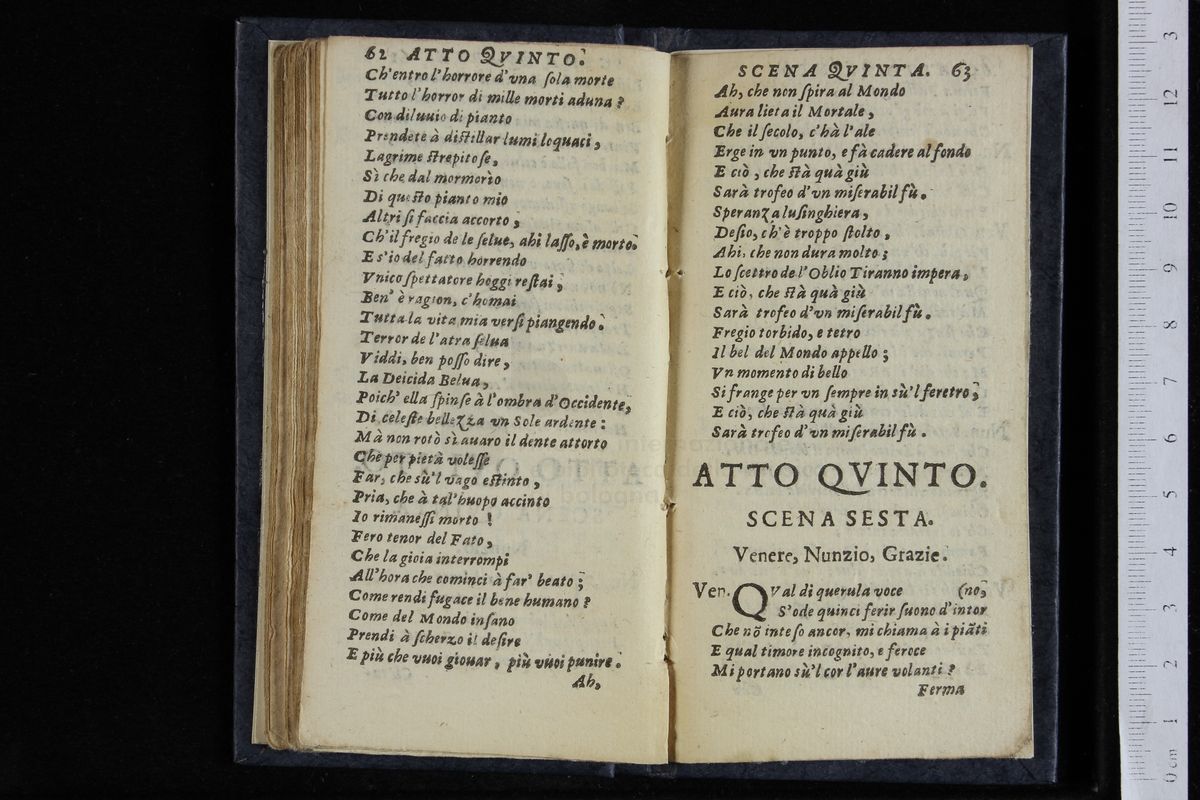 62 ATTO QVINTO.
Ch'entro l'horrore d'vna ſola morte
Tutto l'horror di mille morti aduna?
Con diluuio di pianto
Prendete à diſtillar lumi loquaci,
Lagrime ſtrepitoſe,
Sì che dal mormorìo
Di queſto pianto mio
Altri ſi faccia accorto,
Ch'il fregio de le ſelue, ahi laſſo, è morto.
E s'io del fatto horrendo
Vnico ſpettatore hoggi reſtai,
Ben' è ragion, c'homai
Tutta la vita mia verſi piangendo.
Terror de l'atra ſelua
Viddi, ben poſſo dire,
La Deicida Belua,
Poich' ella ſpinſe à l'ombra d'Occidente,
Di celeſte bellezza vn Sole ardente:
Mà non rotò sì auaro il dente attorto
Che per pietà voleſſe
Far, che sù'l vago eſtinto,
Pria, che à tal'huopo accinto
Io rimaneſſi morto!
Fero tenor del Fato,
Che la gioia interrompi
All'hora che cominci à far' beato;
Come rendi fugace il bene humano?
Come del Mondo inſano
Prendi à ſcherzo il deſire
E più che vuoi giouar, più vuoi punire.
Ah,
SCENA QVINTA. 63
Ah, che non ſpira al Mondo
Aura lieta il Mortale,
Che il ſecolo, c'hà l'ale
Erge in vn punto, e fà cadere al fondo
E ciò, che ſtà quà giù
Sarà trofeo d'vn miſerabil fù.
Speranza luſinghiera,
Deſio, ch'è troppo ſtolto,
Ahi, che non dura molto;
Lo ſcettro de l'Oblio Tiranno impera,
E ciò, che ſtà quà giù
Sarà trofeo d'vn miſerabil fù.
Fregio torbido, e tetro
Il bel del Mondo appello;
Vn momento di bello
Si frange per vn ſempre in sù'l feretro;
E ciò, che ſtà quà giù
Sarà trofeo d'vn miſerabil fù.
ATTO QVINTO.
SCENA SESTA.
Venere, Nunzio, Grazie.
Ven. QVal di querula voce (no,
S'ode quinci ferir ſuono d'intor
Che nõ inteſo ancor, mi chiama à i piãti
E qual timore incognito, e feroce
Mi portano sù'l cor l'aure volanti?
Ferma